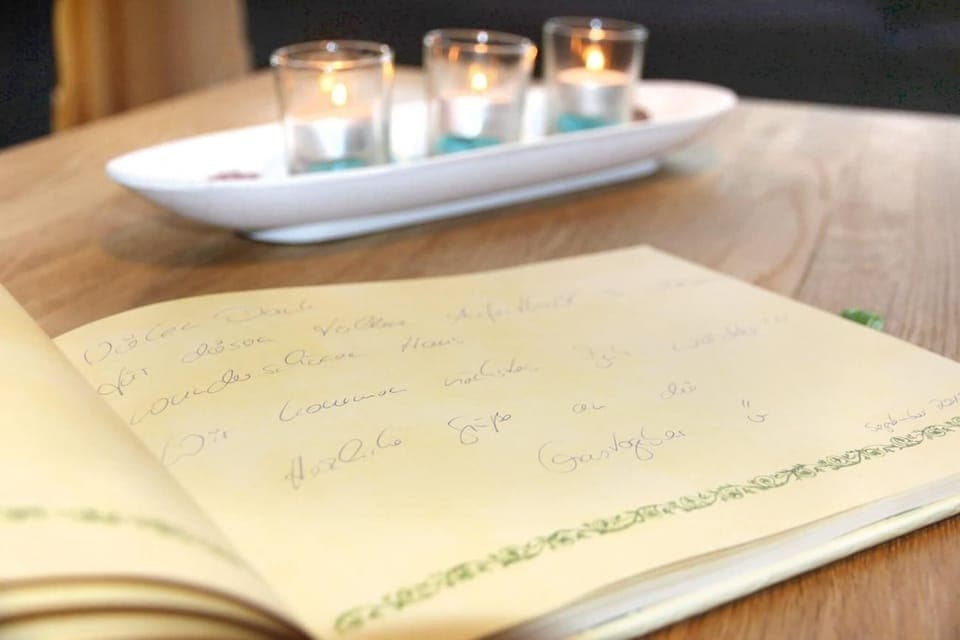 Vielen Dank
für diesen tollen Aufenthalt in
wunderschönen Haus
Wir kommen nächstes
Herzliche Grüße an die
Gastgeber
September